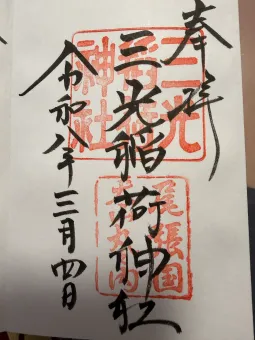 奉拝
三光稲荷神社
令和八年三月四日
三光
稲荷
神社
尾張国
犬山城内